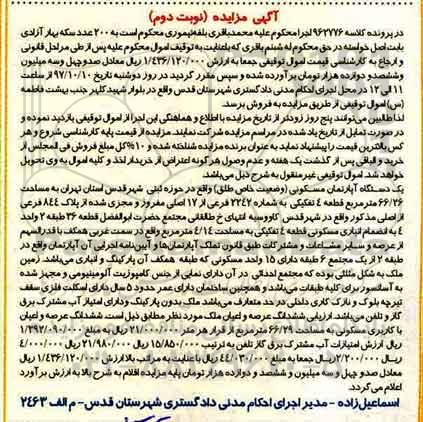 آگهی مزایده (نوبت دوم)
در پرونده کلاسه ۹۶۲۷۷۶ اجرا محکوم علیه محمدباقری بلفه‌تیموری محکوم است به ۲۰۰ عدد سکه بهار آزادی
بابت اصل خواسته در حق محکوم له شبنم باقری که باعنایت به توقیف اموال محکوم علیه پس از طی مراحل قانونی
و ارجاع به کارشناسی قیمت اموال توقیفی جمعا به ارزش ۱/۴۳۶/۱۲۰/۰۰۰ ریال معادل صدوچهل وسه میلیون
وششصدو دوازده هزار تومان برآورده شده و سپس مقرر گردید در روز دوشنبه تاریخ ۹۷/۱۰/۱۰ از ساعت
۱۱ الی ۱۲ در محل اجرای احکام مدنی دادگستری شهرستان قدس واقع در بلوار شهید کلهر جنب بهشت فاطمه
(س) اموال توقیفی از طریق مزایده به فروش برسد.
لذا طالبین می‌توانند پنج روز زودتر از تاریخ مزایده با اطلاع و هماهنگی این اجرا از اموال توقیفی بازدید نموده و
در صورت تمایل از تاریخ یاد شده در مراسم مزایده شرکت نمایند. مزایده از قیمت پایه کارشناسی شروع و هر
کس بالاترین قیمت را پیشنهاد نماید به عنوان برنده مزایده شناخته شده و ۱۰% کل مبلغ فروش فی المجلس از
خرید و الباقی پس از گذشت یک هفته و عدم وصول هرگونه اعتراض از خریدار اخذ و کلیه اموال به وی تحویل
خواهد شد. اموال توقیفی غیرمنقول به شرح ذیل می‌باشد.
یک دستگاه آپارتمان مسکونی (وضعیت خاص طلق) واقع در حوزه ثبتی شهرقدس استان تهران به مساحت
۶۶/۲۶ مترمربع قطعه ۴ تفکیکی به شماره ۲۲۴۲ فرعی از ۱۷ اصلی مفروز و مجزی شده از پلاک ۸۴۴ فرعی
از اصلی مذکور واقع در شهرقدس کاووسیه انتهای خ طالقانی مجتمع حضرت ابوالفضل قطعه ۳۶ طبقه ۲ واحد
۴ به انضمام انباری مسکونی قطعه ۴ تفکیکی به مساحت ۴/۱۴ مترمربع واقع در سمت غربی همکف با قدرالسهم
از عرصه و سایر مشاعات و مشترکات طبق قانون تملک آپارتمان‌ها و آیین‌نامه اجرایی آن آپارتمان واقع در
طبقه ۲ از یک مجتمع ۶ طبقه دارای ۱۵ واحد مسکونی که طبقه همکف آن پارکینگ و انباری می‌باشد. زمین
ملک به شکل مثلثی بوده که مجتمع احداثی در آن دارای نمایی از جنس کامپوزیت آلومینیومی و مجهز شده
به آسانسور برای کلیه طبقات می‌باشد و همچنین ساختمان دارای عمر حدود ۵ سال دارای اسکلت فلزی سقف
تیرچه بلوک و نازک کاری داخلی در حد متعارف می‌باشد ملک بدون پارکینگ و دارای امتیاز آب مشترک برق
گاز و تلفن می‌باشد. ارزیابی ششدانگ عرصه و اعیان ملک مورد نظر مطابق ذیل است: ششدانگ عرصه و اعیان
با کاربری مسکونی به مساحت ۶۶/۲۹ مترمربع از قرار هر متر ۲۱/۰۰۰/۰۰۰ ریال به مبلغ ۱/۳۹۲/۰۹۰/۰۰۰
ریال ارزش امتیازات آب مشترک برق گاز تلفن به ترتیب ۱۵/۸۵۰/۰۰۰ ریال ۲۱/۹۸۰/۰۰۰ ریال ۴/۰۰۰/۰۰۰
ریال ۲/۲۰۰/۰۰۰ ریال جمعا به مبلغ ۴۴/۰۳۰/۰۰۰ ریال با عنایت به مراتب بالا ارزش ۱/۴۳۶/۱۲۰/۰۰۰ ریال
معادل صدو چهل و سه میلیون و ششصد و دوازده هزار تومان پایه مزایده اقلام به شرح بالا به ارزش برآورد
اعلام می‌گردد.
اسماعیل‌زاده - مدیر اجرای احکام مدنی دادگستری شهرستان قدس- م الف ۲۴۶۳